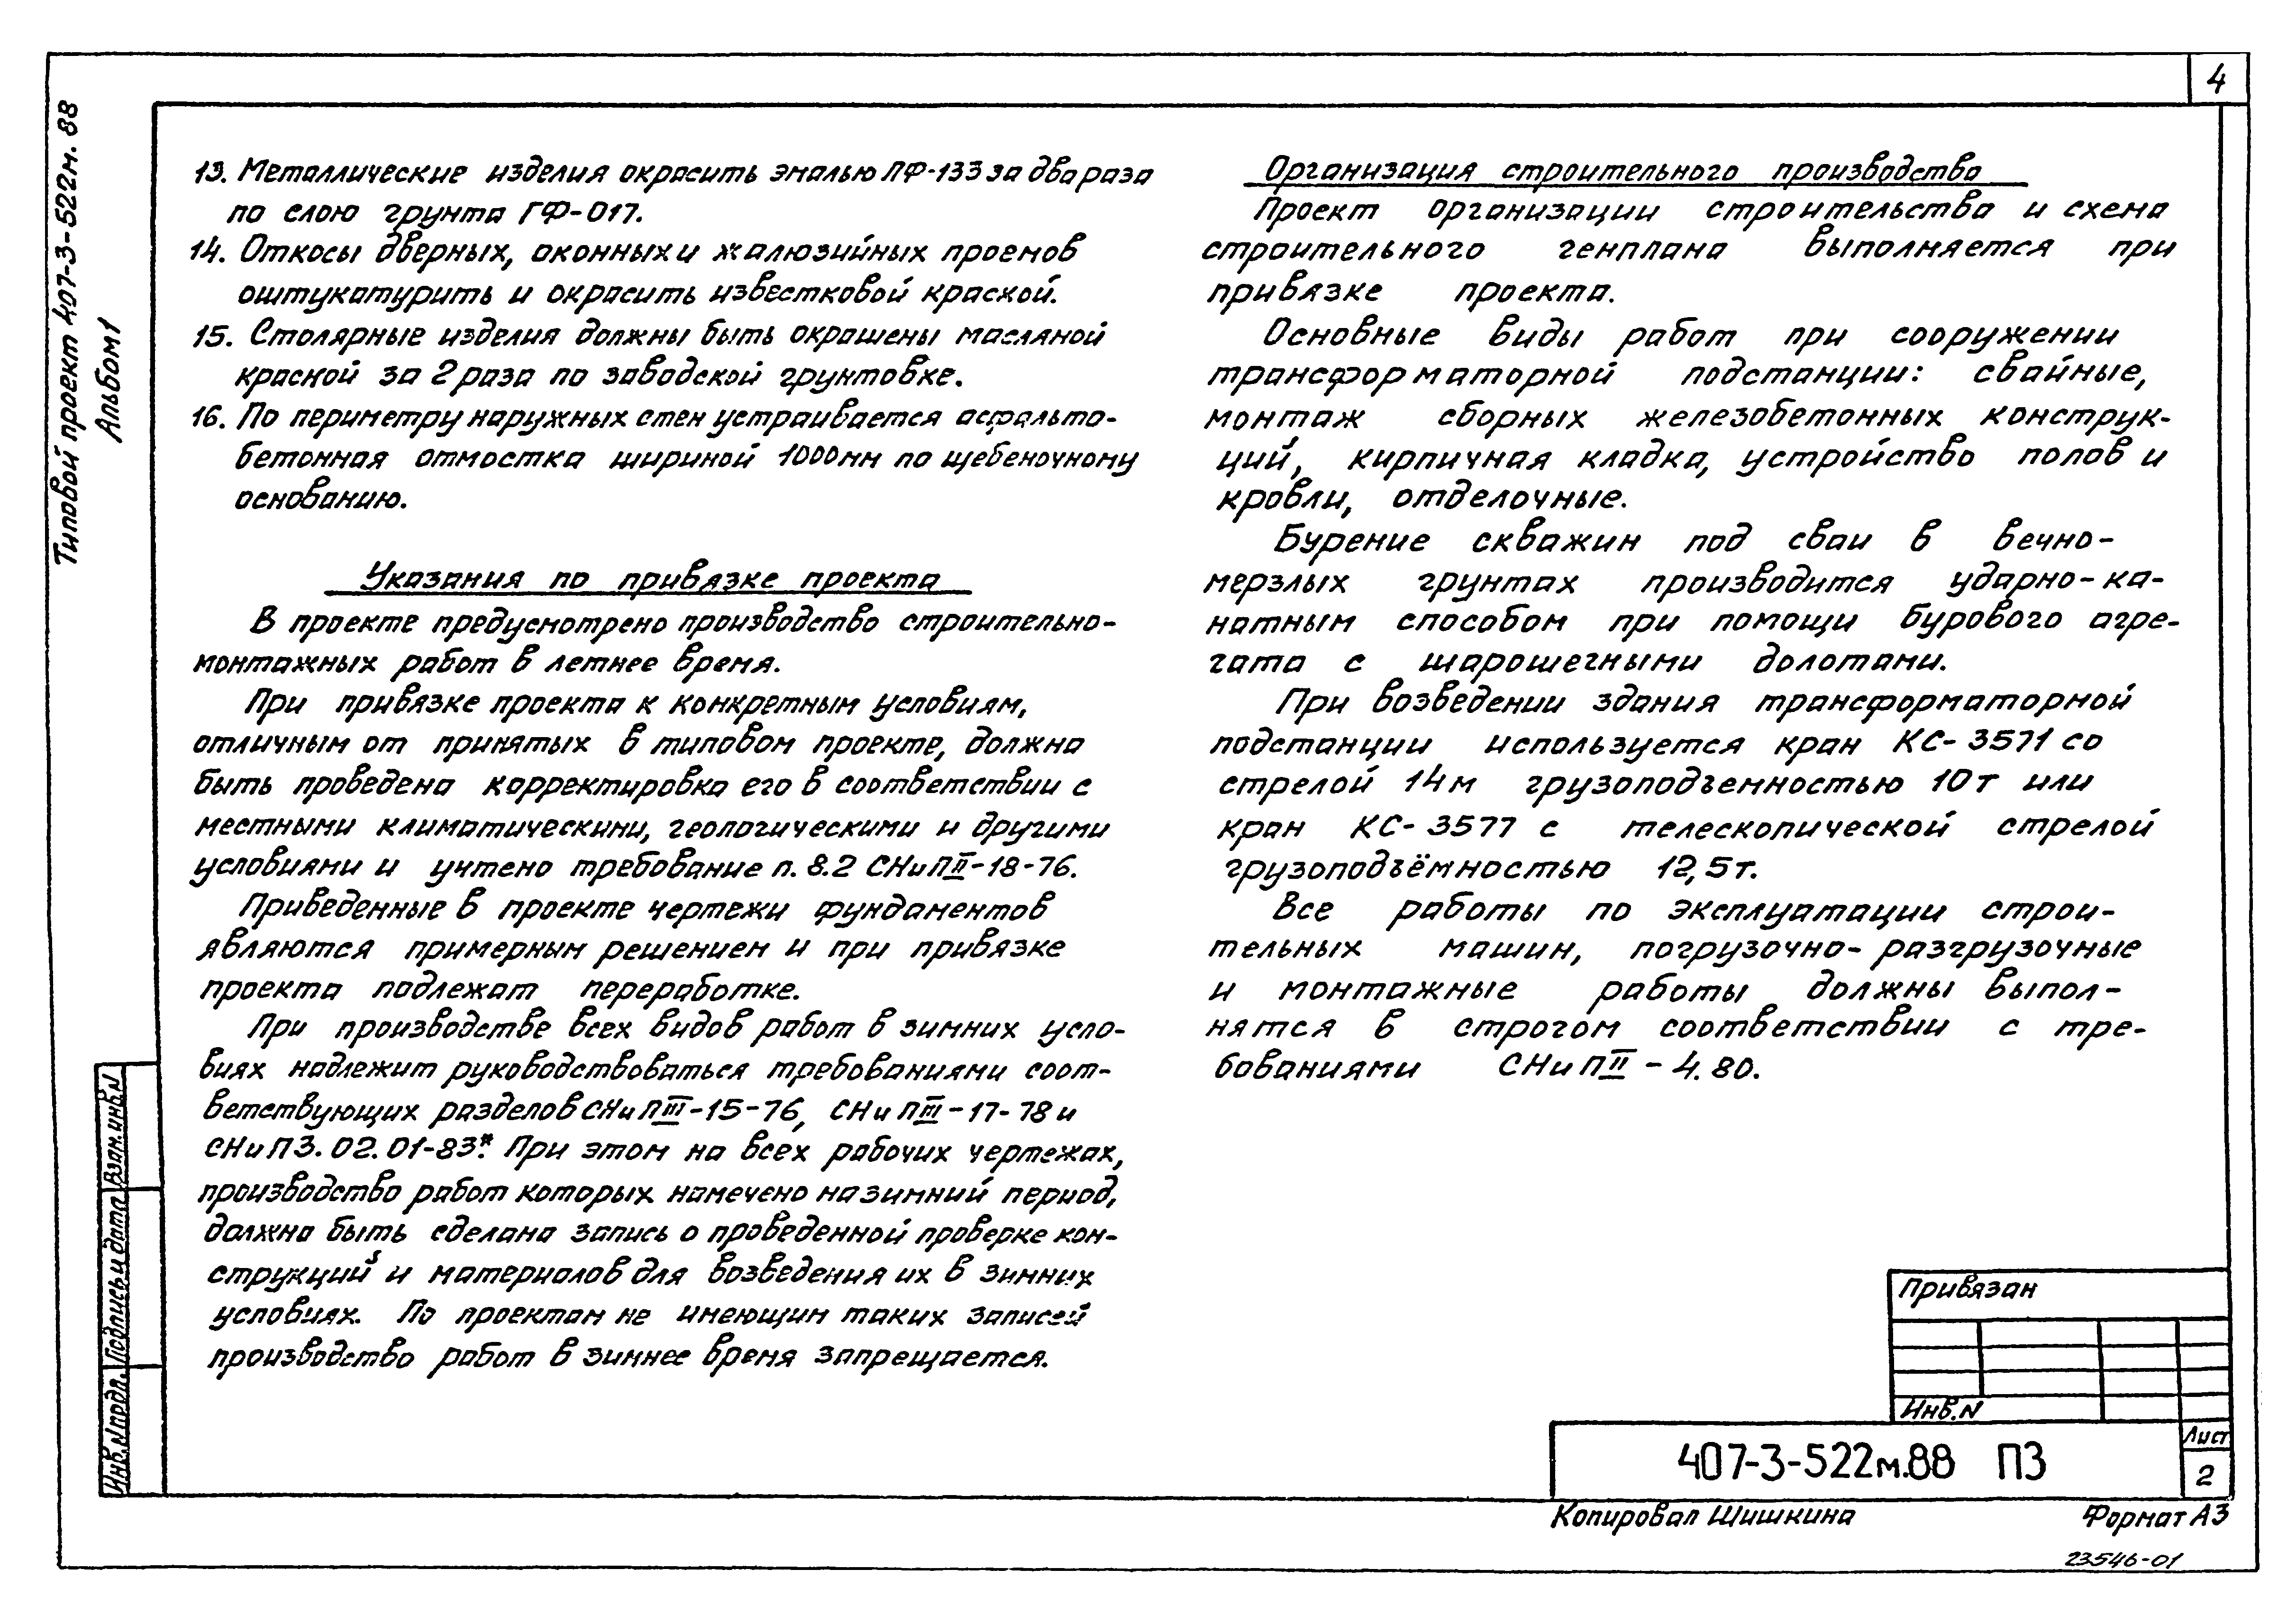 4
Типовой проект 407-3-522м.88
Альбом 1
13. Металлические изделия окрасить эмалью ПФ-133 за два раза
по слою грунта ГФ-017.
14. Откосы дверных, оконных и жалюзийных проемов
оштукатурить и окрасить известковой краской.
15. Столярные изделия должны быть окрашены масляной
краской за 2 раза по заводской грунтовке.
16. По периметру наружных стен устраивается асфальто-
бетонная отмостка шириной 1000мм по щебеночному
основанию.
Указания по привязке проекта
В проекте предусмотрено производство строительно-
монтажных работ в летнее время.
При привязке проекта к конкретным условиям,
отличным от принятых в типовом проекте, должна
быть проведена корректировка его в соответствии с
местными климатическими, геологическими и другими
условиями и учтено требование п. 8.2 СНиП II-18-76.
Приведенные в проекте чертежи фундаментов
являются примерным решением и при привязке
проекта подлежат переработке.
При производстве всех видов работ в зимних усло-
виях надлежит руководствоваться требованиями соот-
ветствующих разделов СНиП III-15-76, СНиП III-17-78 и
СНиП 3.02.01-83*. При этом на всех рабочих чертежах,
производство работ которых намечено на зимний период,
должна быть сделана запись о проведенной проверке кон-
струкций и материалов для возведения их в зимних
условиях. По проектам не имеющим таких записей
производство работ в зимнее время запрещается.
Организация строительного производства
Проект организации строительства и схема
строительного генплана выполняется при
привязке проекта.
Основные виды работ при сооружении
трансформаторной подстанции: свайные,
монтаж сборных железобетонных конструк-
ций, кирпичная кладка, устройство полов и
кровли, отделочные.
Бурение скважин под сваи в вечно-
мерзлых грунтах производится ударно-ка-
натным способом при помощи бурового агре-
гата с шарошечными долотами.
При возведении здания трансформаторной
подстанции используется кран КС-3571 со
стрелой 14м грузоподъемностью 10т или
кран КС-3577 с телескопической стрелой
грузоподъёмностью 12,5т.
Все работы по эксплуатации строи-
тельных машин, погрузочно-разгрузочные
и монтажные работы должны выпол-
нятся в строгом соответствии с тре-
бованиями СНиП II-4.80.
Взам.инв.N
Подпись и дата
Инв.N подл.
Привязан
Инв.N
407-3-522м.88 ПЗ
Лист
2
Копировал Шишкина
Формат А3
23546-01